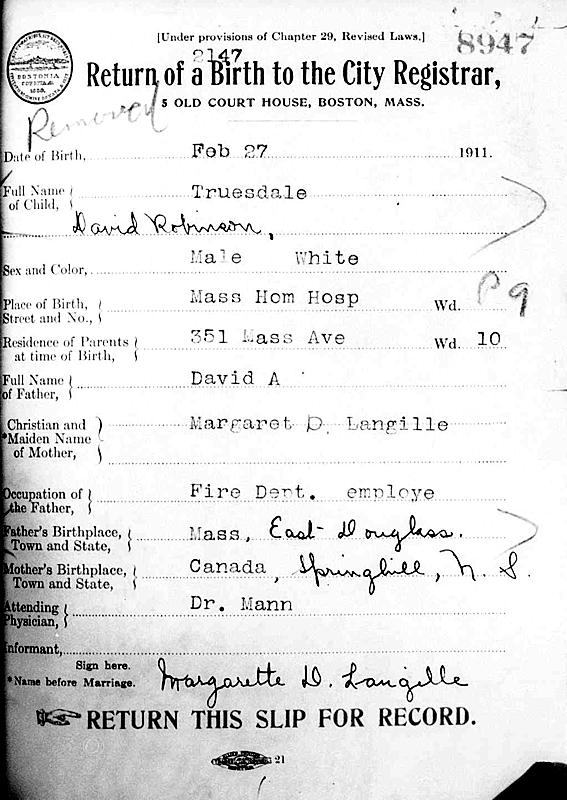 [Under provisions of Chapter 29, Revised Laws.]
8947
2147
Return of a Birth to the City Registrar,
5 OLD COURT HOUSE, BOSTON, MASS.
BOSTONIA
Removed
Date of Birth, Feb 27 1911.
Full Name of Child, Truesdale
David Robinson,
Sex and Color, Male White
Place of Birth, Street and No., Mass Hom Hosp Wd. P 9
Residence of Parents at time of Birth, 351 Mass Ave Wd. 10
Full Name of Father, David A
Christian and *Maiden Name of Mother, Margaret D. Langille
Occupation of the Father, Fire Dept. employe
Father's Birthplace, Town and State, Mass, East Douglass.
Mother's Birthplace, Town and State, Canada, Springhill, N. S.
Attending Physician, Dr. Mann
Informant,
Sign here.
*Name before Marriage. Margarette D. Langille
RETURN THIS SLIP FOR RECORD.
21